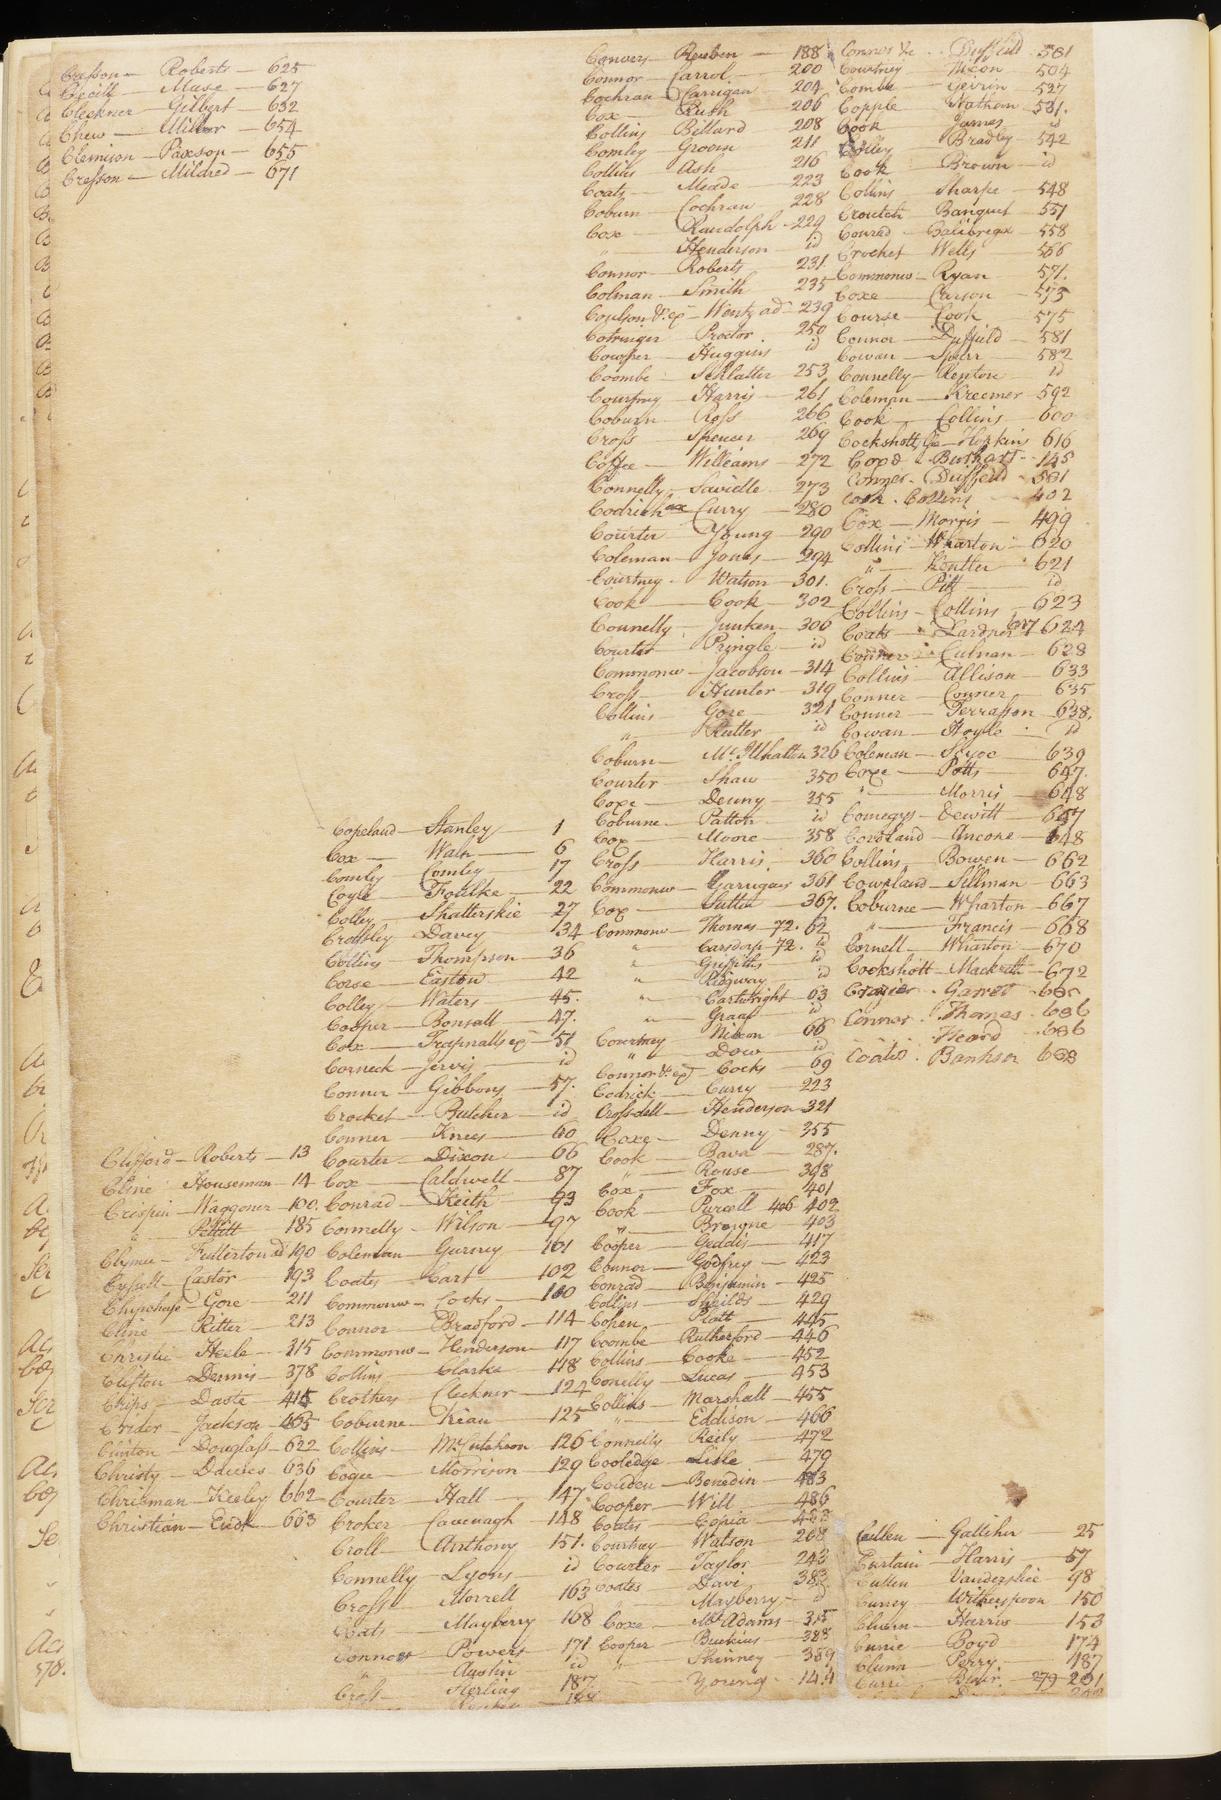 Casson — Roberts — 625
Cecill — Muse — 627
Cleckner Gilbert — 632
Chew — Miller — 654
Clemison — Paxson — 655
Cresson — Mildred — 671
Clifford — Roberts — 13
Cline Houseman — 14
Crispin — Waggoner 100.
" Pettitt 185
Clymer — Fullerton ad 190
Castor — 193
Gore — 211
Cline — Ritter — 213
Christie Steele — 215
Clifton — Dennis — 378
Chips — Daste — 415
Crider — Jackson 465
Clinton — Douglass — 622
Christy — Davies 636
Chrisman — Keeley 662
Christian — 663
Copeland — Stanley — 1
Cox — Waln — 6
Comley — Comley 17
Coyle — Foulke — 22
Colley — Shatterskie — 27
Crossley — Davey — 34
Collins — Thompson — 36
Corse — Easton — 42
Colley — Waters — 45.
Cooper — Bonsall — 47.
Cox — 51
Corneck — Jervis — id
Conner — Gibbons — 57.
Crocket — Butcher — id
Conner — Knees — 60
Courter — Dixon — 66
Cox — Caldwell — 87
Conrad — Keith — 93
Connelly — Wilson — 97
Coleman — Gurney — 101
Coates — Cart — 102
Commonw — Cocks — 110
Connor — Bradford — 114
Commonw — Henderson — 117
Collins — Clarke — 118
Crothers — Cleckner — 124
Coburne — Kean — 125
Collins — McCutcheon 126
Cogue — Morrison — 129
Courter — Hall — 147
Croker — Cavenagh — 148
Croll — Anthony — 151.
Connelly — Lyons — id
Cross — Morrell — 163
Coats — Mayberry 168
Connor — Powers — 171
" — Austin — id
Cross — Sterling 187
Convers — Reuben — 188
Connor — Carrol — 200
Cochran — Carrigan 204
Cox — Rush — 206
Collins — Billard — 208
Comley — Groom 211
Collins — Ash 216
Coats — Meade — 223
Coburn — Cochran 228
Cox — Randolph — 229
" Henderson id
Connor — Roberts 231
Colman — Smith 235
Coulson &c ex — Wentz ad — 239
Cotringer — Proctor. 250
Cowper — Huggins id
Coombe — Schlatter 253
Courtney — Harris — 261
Coburn — Ross 266
Cross — Spencer 269
Coffee — Williams — 272
Connelly — Savidle — 273
Codrick ex — Curry — 280
Courter — Young — 290
Coleman — Jones — 294
Courtney — Watson — 301.
Cook — Cook — 302
Connelly — Junken — 306
Courter Pringle — id
Commonw — Jacobson — 314
Cross — Hunter — 319
Collins — Gore — 321
" Rutter id
Coburn — McIllhatton 326
Courter — Shaw — 350
Coxe — Denny — 355
Coburne — Patton — id
Cox — Moore — 358
Cross — Harris — 360
Commonw — Garrigues 361
Cox — Sutter — 367.
Commonw — Thomas — 72. 62
" Carsdorp 72. id
" Griffiths id
" Ridgway id
" Cartwright 63
" Graaf id
Courtney — Nixon 66
" — Dow — id
Connor &c ex — Cocks — 69
Codrick — Curry — 223
Crossdell — Henderson 321
Coxe — Denny — 355
Cook — Bava — 287.
" — Rouse — 398
Cox — Fox — 401
Cook — Purcell 406 402
" — Browne — 403
Cooper — Geddis — 417
Connor — Godfrey — 423
Conrad — Benjamin — 425
Collins — Sheilds — 429
Cohen — Platt — 445
Coombe — Rutherford — 446
Collins — Cooke — 452
Conelly — Lucas — 453
Collins — Marshall — 455
" — Eddison — 466
Connelly — Reily — 472
Cooledge — Lisle — 479
Couden — Benedin — 483
Cooper — Will — 486
Coates — Copia
Courtney — Watson 268
Courter — Taylor — 243
Coates — Davi — 383
" — Mayberry — id
Coxe — McAdams — 315
Cooper — Buckius — 388
" — Skinney — 359
Young — 144
Connor &c — Duffield 581
Courtney — Nixon — 504
Combe — Gevrin — 527
Copple Nathan — 531.
Cook James — id
Colley Bradley — 542
Cook — Brown — id
Collins Sharpe — 548
Croutch — Banquet — 551
Conrad — 558
Crocket Wells — 566
Commonw — Ryan — 571.
Coxe — Carson — 573
Course — Cook — 575
Connor — Duffield — 581
Cowan — Spurr — 582
Connelly — Renton — id
Coleman — Kreemer 592
Cook — Collins — 600
Cockshott &c — Hopkins 616
Coxe — Burkart — 145
Conner — Duffield — 581
Cook . Collins — 402
Cox — Morris — 499
Collins — Wharton — 620
" — Kentler — 621
Cross — Pitt — id
Collins — Collins — 623
Coats — Lardner 617 624
Conner — Culnan — 628
Collins — Allison — 633
Conner — Conner — 635
Conner — Terrasson — 638.
Cowan — Hoyle — id
Coleman — 639
Coxe — Potts — 647.
" — Morris — 648
Comegys — Dewitt — 647
Copeland — Ancone — 648
Collins — Bowen — 662
Cowpland — Sillman — 663
Coburne — Wharton — 667
" — Francis — 668
Cornell — Wharton — 670
Cockshott — Mackrith — 672
Crozier . Garret
Connor . Thomas . 686
Heard . 686
Coates . Bankson 688
Cullen — Galliher 25
Curtain — Harris — 57
Cullen — Vanderslice — 98
Currey — Witherspoon 150
Harris — 153
Currie — Boyd 174
Clunn — Perry — 187
Curri — Blair. — 279 201